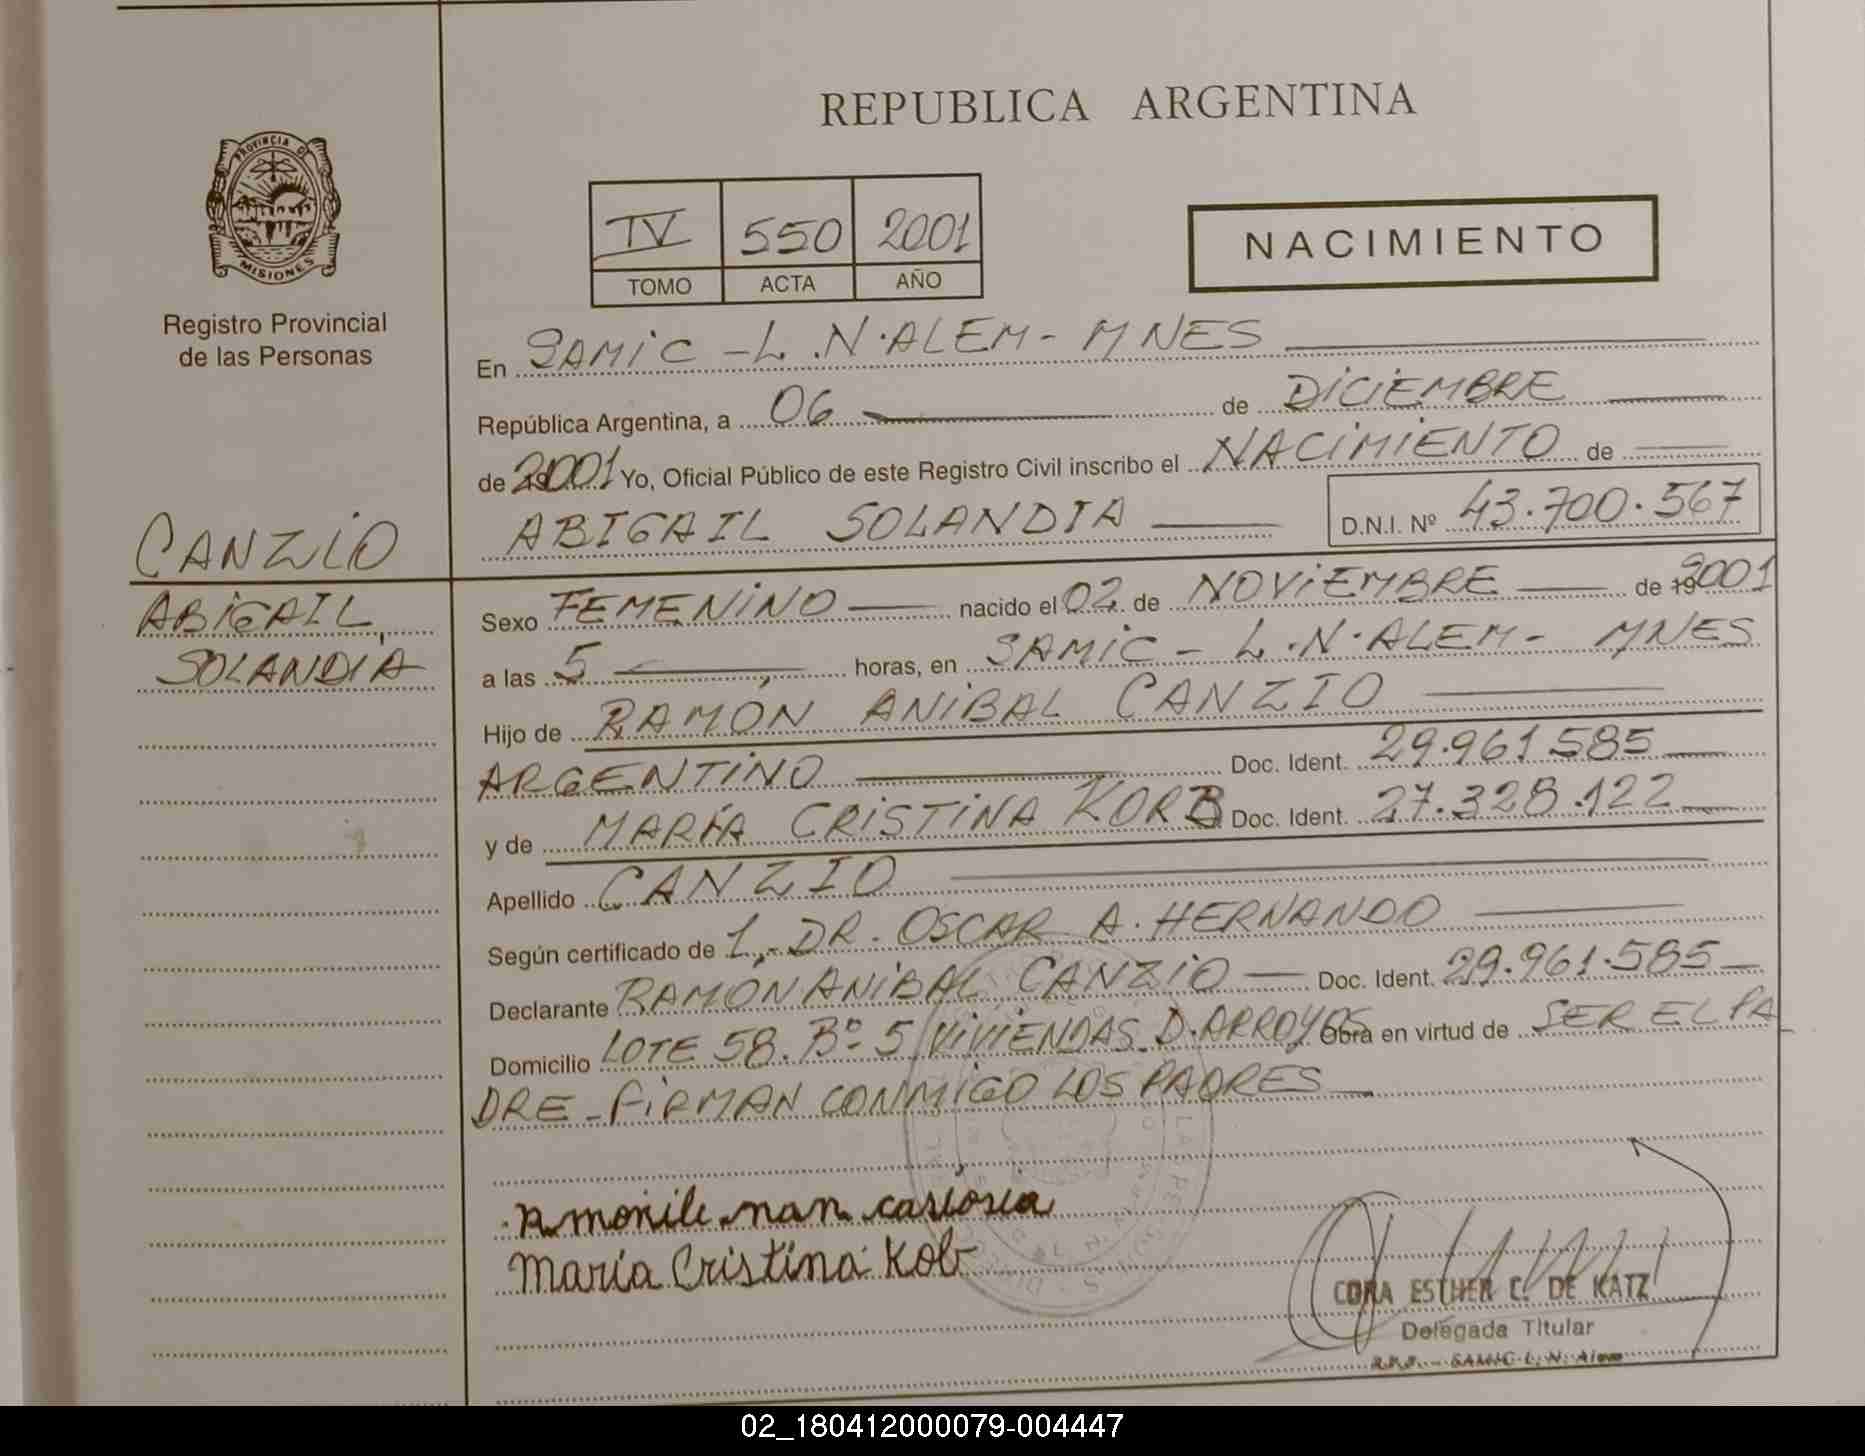 REPUBLICA ARGENTINA
PROVINCIA DE
MISIONES
Registro Provincial
de las Personas
IV 550 2001
TOMO ACTA AÑO
NACIMIENTO
En SAMIC - L.N.ALEM - MNES
República Argentina, a 06 de DICIEMBRE
de 2001 Yo, Oficial Público de este Registro Civil inscribo el NACIMIENTO de
ABIGAIL SOLANDIA D.N.I. Nº 43.700.567
CANZIO
ABIGAIL,
SOLANDIA
Sexo FEMENINO nacido el 02 de NOVIEMBRE de 19 2001
a las 5 horas, en SAMIC - L.N.ALEM - MNES
Hijo de RAMÓN ANIBAL CANZIO
ARGENTINO Doc. Ident. 29.961.585
y de MARÍA CRISTINA KORB Doc. Ident. 27.328.122
Apellido CANZIO
Según certificado de 1.- DR. OSCAR A. HERNANDO
Declarante RAMÓN ANIBAL CANZIO Doc. Ident. 29.961.585
Domicilio LOTE 58. Bº 5 VIVIENDAS D.ARROYOS Obra en virtud de SER EL PA
DRE - FIRMAN CONMIGO LOS PADRES
María Cristina Kob
CORA ESTHER C. DE KATZ
Delegada Titular
R.P.P. - SAMIC L. N. Alem
02_180412000079-004447